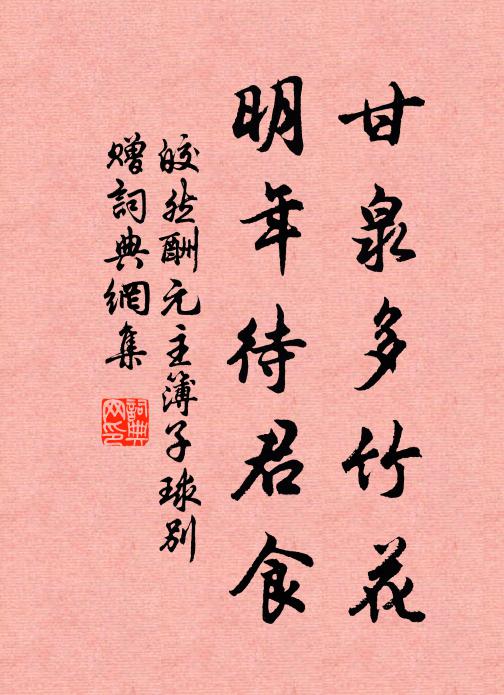 甘泉多竹花
明年待君食
皎然酬元主簿子球別
贈詞典網集
詞典
网印